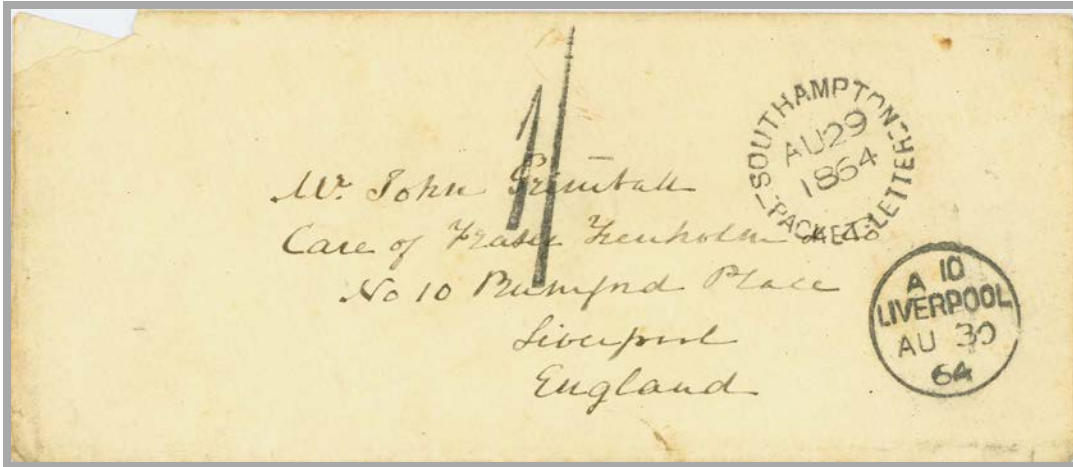 1/
SOUTHAMPTON
PACKET-LETTER
AU29
1864
Mr. John Grimball
Care of Fraser Trenholm & Co
No 10 Rumford Place
Liverpool
England
A 10
LIVERPOOL
AU 30
64